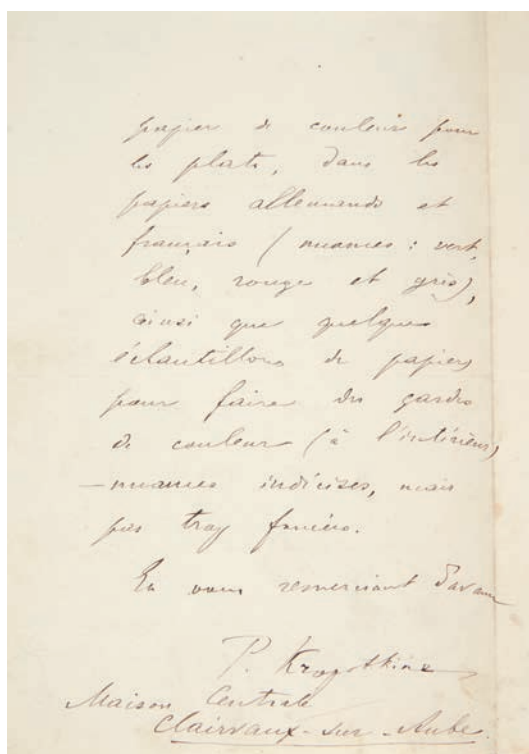 papiers de couleurs pour
les plats, dans les
papiers allemands et
français (nuances : vert,
bleu, rouge et gris),
ainsi que quelques
échantillons de papiers
pour faire des gardes
de couleur (à l'intérieur)
— nuances indécises, mais
pas trop foncées.
En vous remerciant d'avance
P. Kropotkine
Maison Centrale
Clairvaux-sur-Aube.